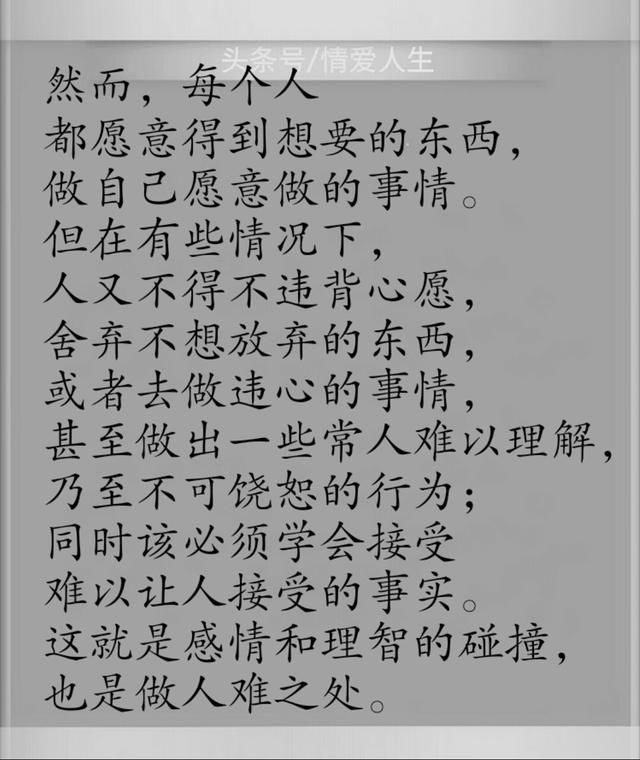 头条号/情爱人生
然而，每个人
都愿意得到想要的东西，
做自己愿意做的事情。
但在有些情况下，
人又不得不违背心愿，
舍弃不想放弃的东西，
或者去做违心的事情，
甚至做出一些常人难以理解，
乃至不可饶恕的行为；
同时该必须学会接受
难以让人接受的事实。
这就是感情和理智的碰撞，
也是做人难之处。